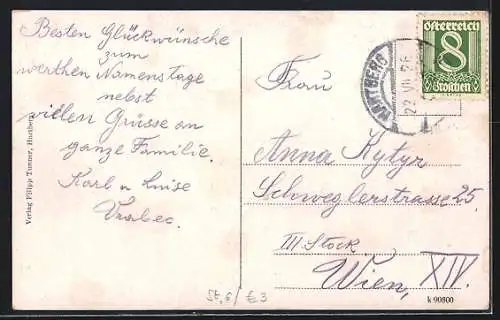 Besten Glückwünsche
zum
werthen Namenstage
nebst
vielen Grüsse an
ganze Familie.
Karl u Luise
Vrabec.
Verlag Filipp Tommer, Hartberg
Österreich
8
Groschen
HARTBERG
22 VII 26
Frau
Anna Kytyr
Schweglerstrasse 25.
III Stock
Wien, XIV.
St, 6/ € 3
k 90800